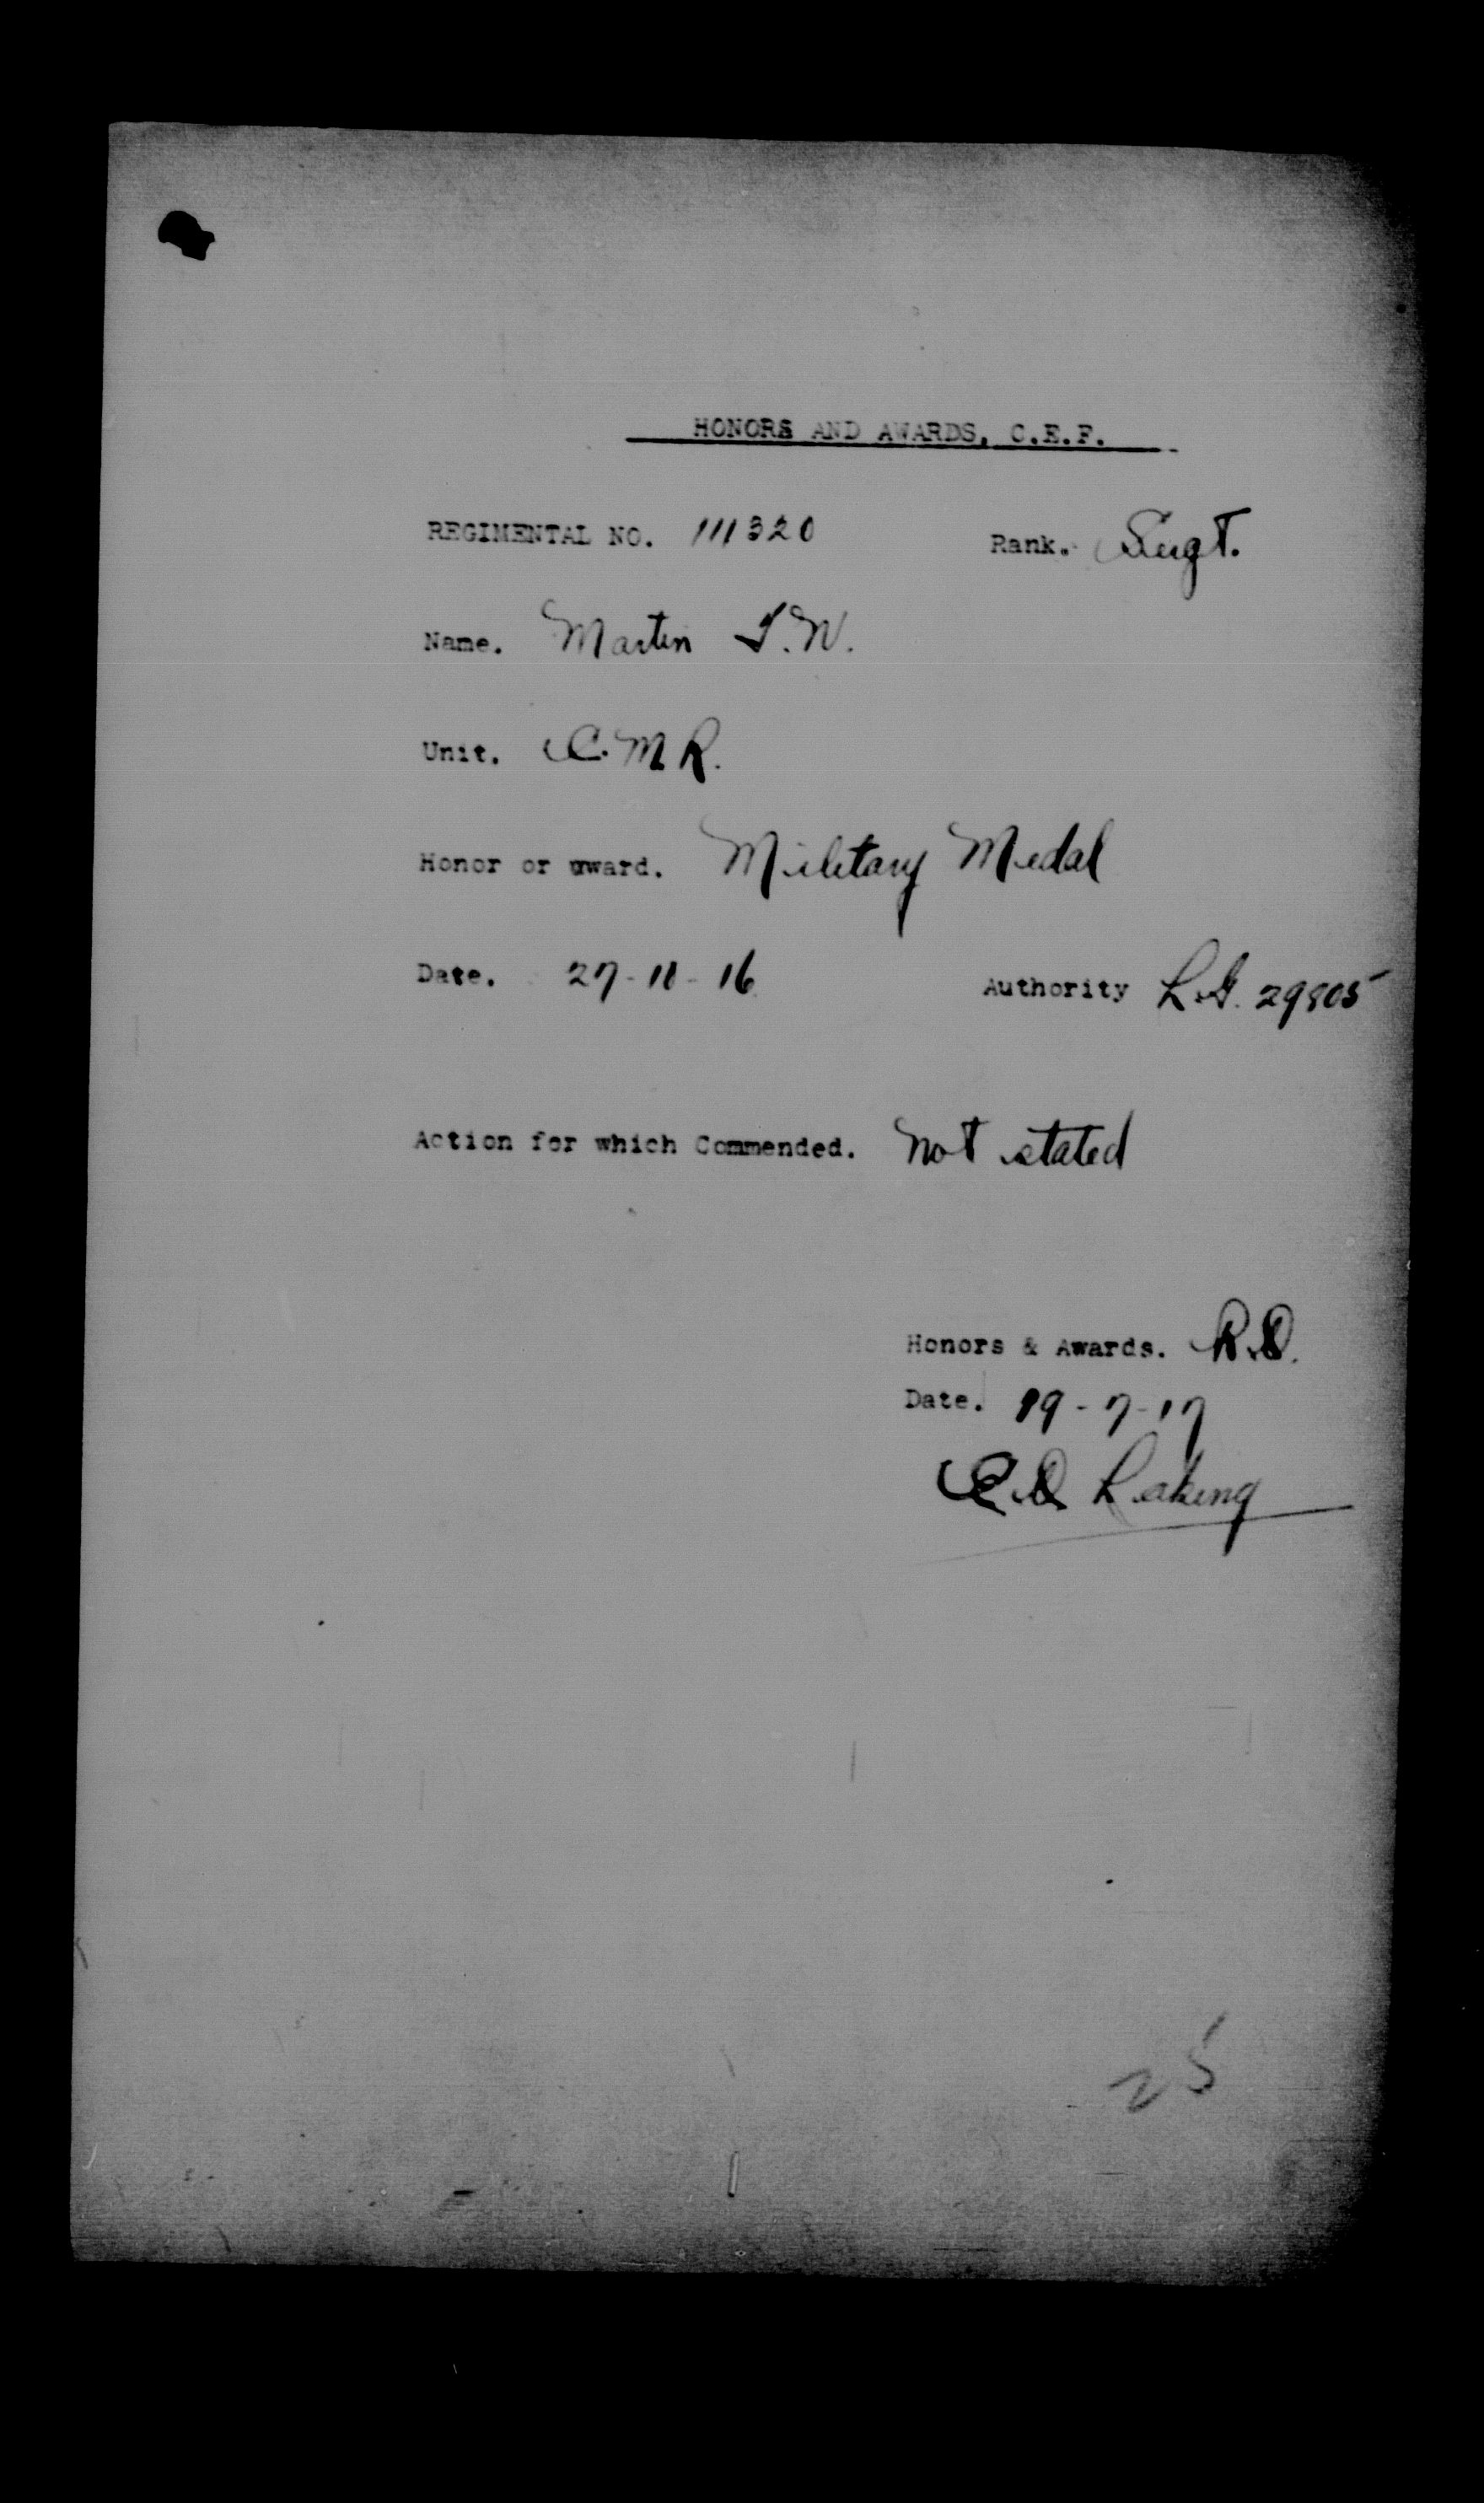 HONORS AND AWARDS, C.E.F.
REGIMENTAL NO. 111320 Rank. Sergt.
Name. Martin T.W.
Unit. C.M.R.
Honor or award. Military Medal
Date. 27-10-16 Authority L.G. 29805
Action for which Commended. Not stated
Honors & Awards. R.D.
Date. 19-7-17
Leaking
25